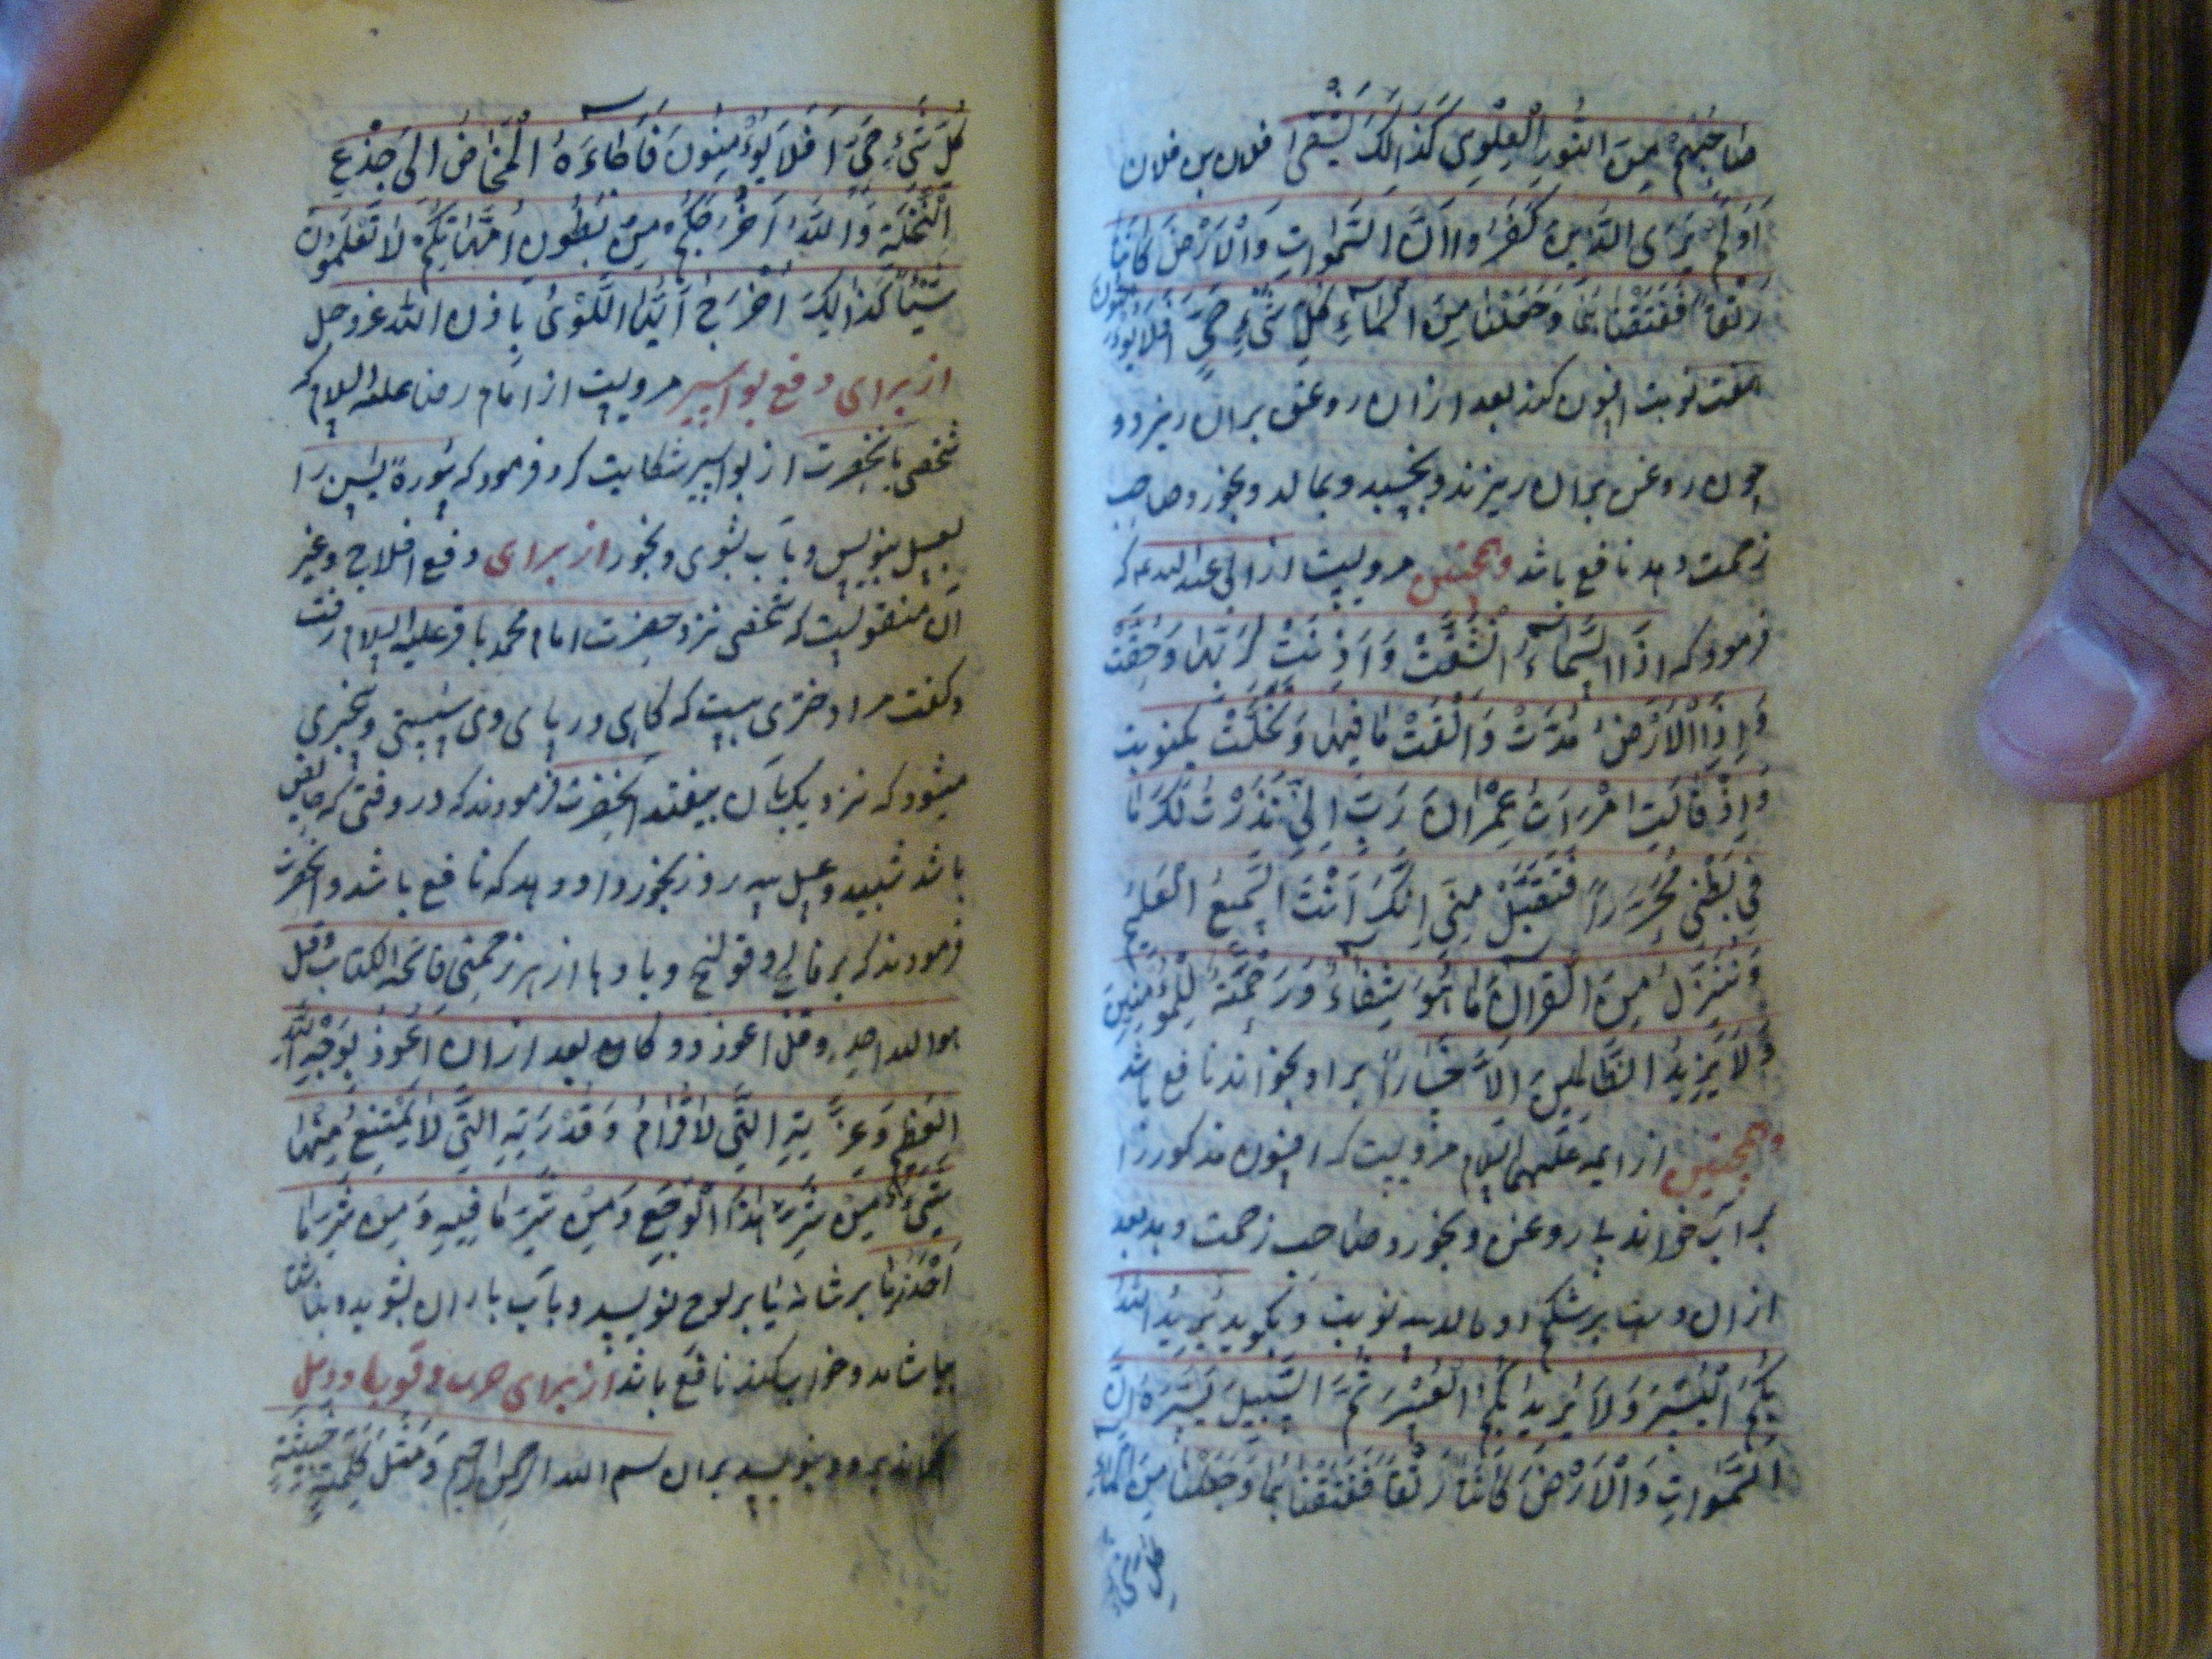 صاحبهم من النور العلوي كذالك يشفى فلان بن فلان
اَوَلَمْ يَرَى الَّذينَ كَفَرُوا اَنَّ السَّمٰوٰاتِ وَالْاَرْضَ كٰانَتٰا
رَتْقاً فَفَتَقْنٰاهُمٰا وَجَعَلْنٰا مِنَ الْمٰاءِ كُلَّ شَىْءٍ حَىٍّ اَفَلاٰ يُؤْمِنُونَ
هفت نوبت افسون كند بعد ازان روغن بران ريزد و
چون روغن بران ريزند و بجنبد و بمالد و بخورد صاحب
زحمت دهد نافع باشد وهمچنين مرويست از ابى عبدالله ع كه
فرمود كه اِذَا السَّمٰاءُ انْشَقَّتْ وَ اَذِنَتْ لِرَبِّهٰا وَحُقَّتْ
وَاِذَا الْاَرْضُ مُدَّتْ وَاَلْقَتْ مٰا فيهٰا وَتَخَلَّتْ
وَاِذْ قٰالَتِ امْرَاَتُ عِمْرٰانَ رَبِّ اِنّي نَذَرْتُ لَكَ مٰا
في بَطْني مُحَرَّراً فَتَقَبَّلْ مِنّي اِنَّكَ اَنْتَ السَّميعُ الْعَليمُ
وَنُنَزِّلُ مِنَ الْقُرْاٰنِ مٰا هُوَ شِفٰاءٌ وَرَحْمَةٌ لِلْمُؤْمِنينَ
وَلاٰ يَزيدُ الظّٰالِمينَ اِلاّٰ خَسٰاراً برا و بخواند نافع باشد
وهمچنين از ايمه عليهم السلام مرويست كه افسون مذكور را
بر آب خواند با روغن و بخورد صاحب زحمت دهد بعد
ازان دست بر شكم او مالد سه نوبت و بگويد يُريدُ اللهُ
بِكُمُ الْيُسْرَ وَلاٰ يُريدُ بِكُمُ الْعُسْرَ ثُمَّ السَّبيلَ يَسَّرَهُ اَنَّ
السَّمٰوٰاتِ وَالْاَرْضَ كٰانَتٰا رَتْقاً فَفَتَقْنٰاهُمٰا وَجَعَلْنٰا مِنَ الْمٰاءِ
كل شىء
كُلَّ شَىْءٍ حَىٍّ اَفَلاٰ يُؤْمِنُونَ فَاَجٰاءَهَا الْمَخٰاضُ اِلىٰ جِذْعِ
النَّخْلَةِ وَاللهُ اَخْرَجَكُمْ مِنْ بُطُونِ اُمَّهٰاتِكُمْ لاٰ تَعْلَمُونَ
شَيْئاً كَذٰالِكَ اُخْرُجْ اَيُّهَا باذن الله عز و جل
از براى دفع بواسير مرويست از امام رضا عليه السلام كه
شخصى بانحضرت از بواسير شكايت كرد فرمود كه سورة يٰسن را
بعسل بنويس و بآب بشوى و بخور از براى دفع افلاج و غير
آن منقولست كه شخصى نزد حضرت امام محمد باقر عليه السلام رفت
و گفت مرا دخترى هست كه گاهى در پاى وى سستى و
ميشود كه نزديك بآن بيفتد انحضرت فرمودند كه در وقتى كه حائض
باشد شبيد و عسل سه روز بخورد او دهد كه نافع باشد و انحضرت
فرمودند كه بر فالج و قولنج و بادها از هر زحمتى فاتحة الكتاب و قل
هو الله احد و قل اعوذ دوگانه بعد ازان اَعُوذُ بِوَجْهِ اللهِ
الْعَظيمِ وَعِزَّتِهِ الَّتي لاٰ تُرٰامُ وَ قُدْرَتِهِ الَّتي لاٰ يَمْتَنِعُ مِنْهٰا
شَىْءٌ مِنْ شَرِّ هٰذَا الْوَجَعِ وَمِنْ شَرِّ مٰا فيهِ وَمِنْ شَرِّ مٰا
اَحْذَرُ بر شانه يا بر لوح نويسد و بآب باران بشويد و بناشتا
بياشامد و خواب كند نافع باشد از براى جرب و قوبا و دمل
بخواند برو و بنويسد بران بسم الله الرحمن الرحيم وَمَثَلُ كَلِمَةٍ خَبيثَةٍ